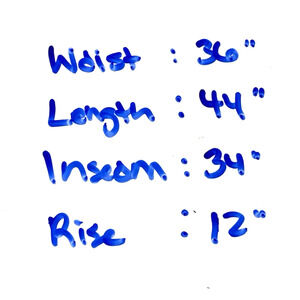 Waist : 36"
Length : 44"
Inseam : 34"
Rise : 12"